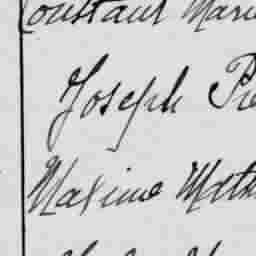 Constant Marie
Joseph Pie
Maxime Math